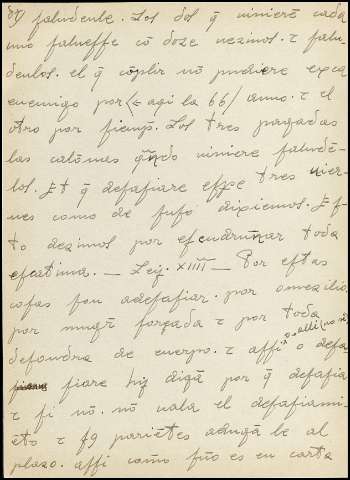 faludente. Los dos q̄ vinierē cada
uno faluesse cō doze vezinos. τ falu-
denlos. el q̄ cōplir nō pudiere exca
enemigo por aqi la 66/ anno. τ el
otro por fienp̄. Los tres pagadas
las calōmas q̄ndo viniere faludē-
los. Et q̄ defafiare effe tres vier-
nes como de fufo dixiemos. Ef-
to dezimos por efcudruñar toda
efcatima. — Ley. XIIII — Por eftas
cofas fea adefafiar. por omezilio
por mugr̄ forçada τ por toda
defondra de cuerpo. τ affi o defa-
fiare hy digā por q̄ defafia
τ fi nō. nō vala el defafiami-
ēto τ fq pariētes adugā le al
plazo. affi como fuo es en carta